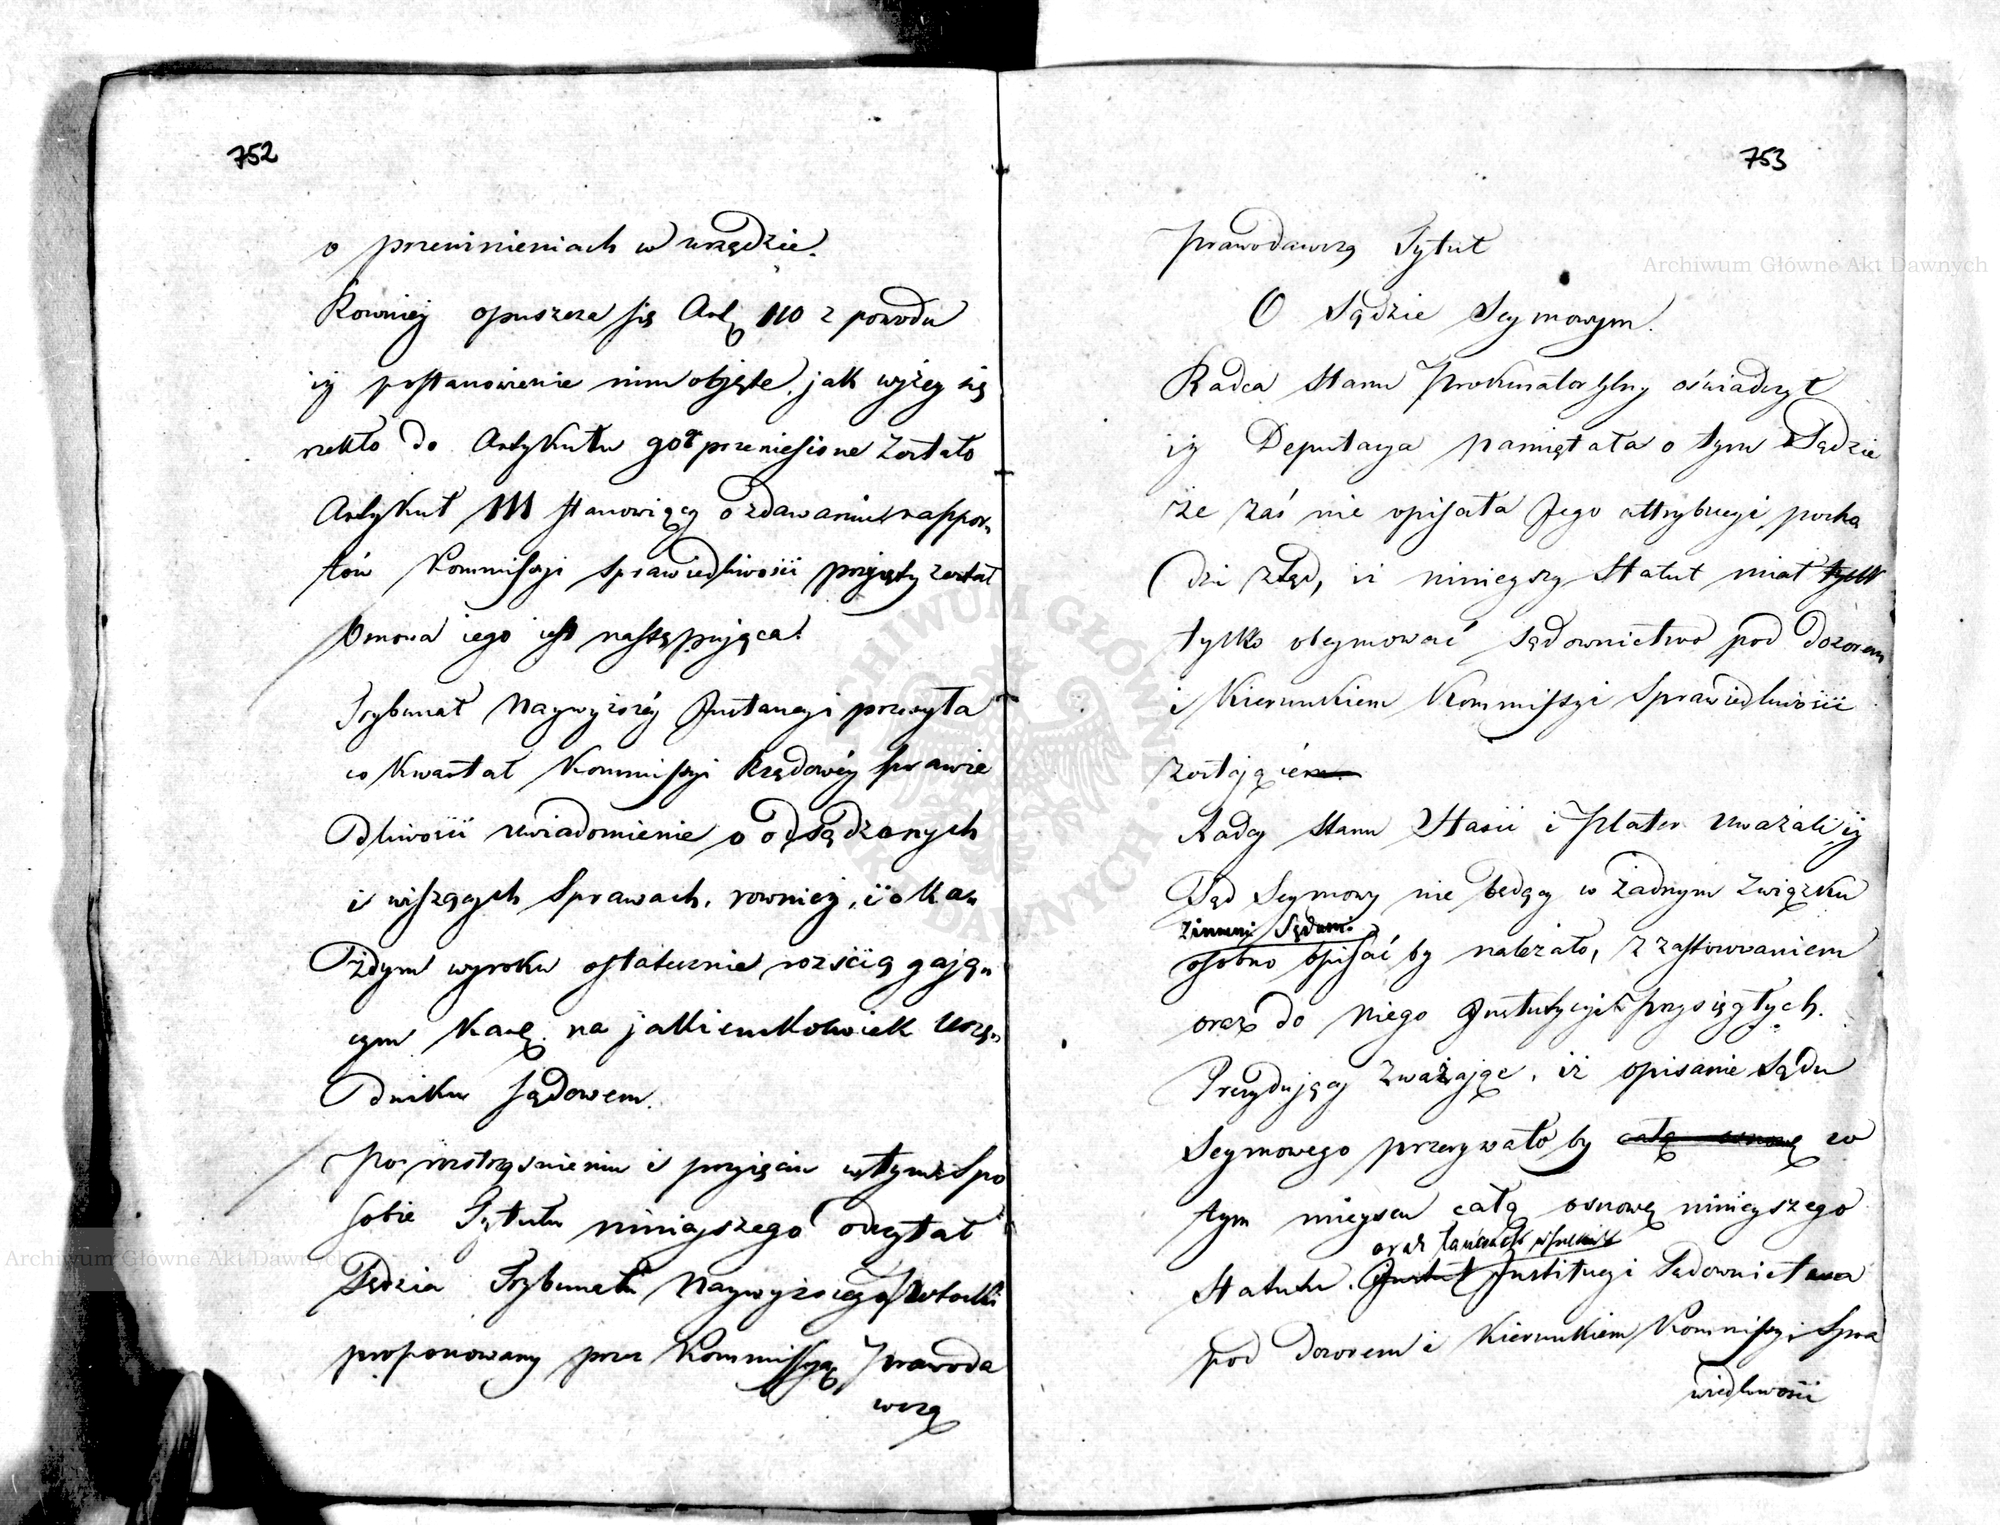 752
o przewinieniach w urzędzie.
Rownież opuszcza się Art. 110 z powodu
iż postanowienie nim objęte, jak wyżey się
rzekło do Artykułu 90 przeniesione zostało
Artykuł 111 stanowiący o zdawaniu rappor-
tów Kommissyi Sprawiedliwosci przyięty został
Osnowa iego iest następuiąca:
Trybunał Naywyższéy Instancyi przesyła
co Kwartał Kommissyi Rządowéy Sprawie
dliwosci uwiadomienie o odsądzonych
i wiszących Sprawach, rownież, i o ka-
żdym wyroku ostatecznie rozściągaiąc-
cym karę na jakiemkolwiek Urzę-
dniku sądowem.
Po roztrząśnieniu i przyięciu w tymże Spo
sobie Tytułu ninieyszego odczytał
Sędzia Trybunału Naywyższego
proponowany przez Kommissyą Prawoda
wczą
753
prawodawczą Tytuł
O Sądzie Seymowym.
Radca Stanu Prokurator Glny oświadczył
iż Deputacya pamiętała o tym Sądzie
że zaś nie opisała Jego attrybucyi, pocho
dzi ztąd, iż ninieyszy Statut miał tylk
tylko obeymować sądownictwo pod dozorem
i Kierunkiem Kommissyi Sprawiedliwosci
zostaiącém
Radcy Stanu Stasic i Plater uważali, iż
Sąd Seymowy nie będąc w żadnym związku
z innemi Sądami
osobno opisać by należało, z zastosowaniem
oraz do niego Instytucyi przysięgłych.
Prezyduiący zważaiąc, iż opisanie Sądu
Seymowego przerywało by całą osnowę w
tym mieyscu całą osnowę ninieyszego
oraz łańcuch
Statutu. Instytut Instituzyi Sądownictwa
pod Dozorem i Kierunkiem Kommissyi Spra
wiedliwosci
Archiwum Główne Akt Dawnych
Archiwum Główne Akt Dawnych
ARCHIWUM GŁÓWNE AKT DAWNYCH